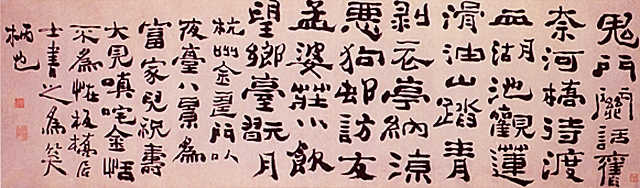 鬼門關話舊
奈河橋待渡
血湖池觀蓮
滑油山踏青
剥衣亭納涼
惡狗邨訪友
孟婆莊小飲
望鄉臺翫月
杭州金壽門以
夜臺八景為
富家兒祝壽
大見嗔咤金恬
不為怪板橋居
士書之為笑
柄也